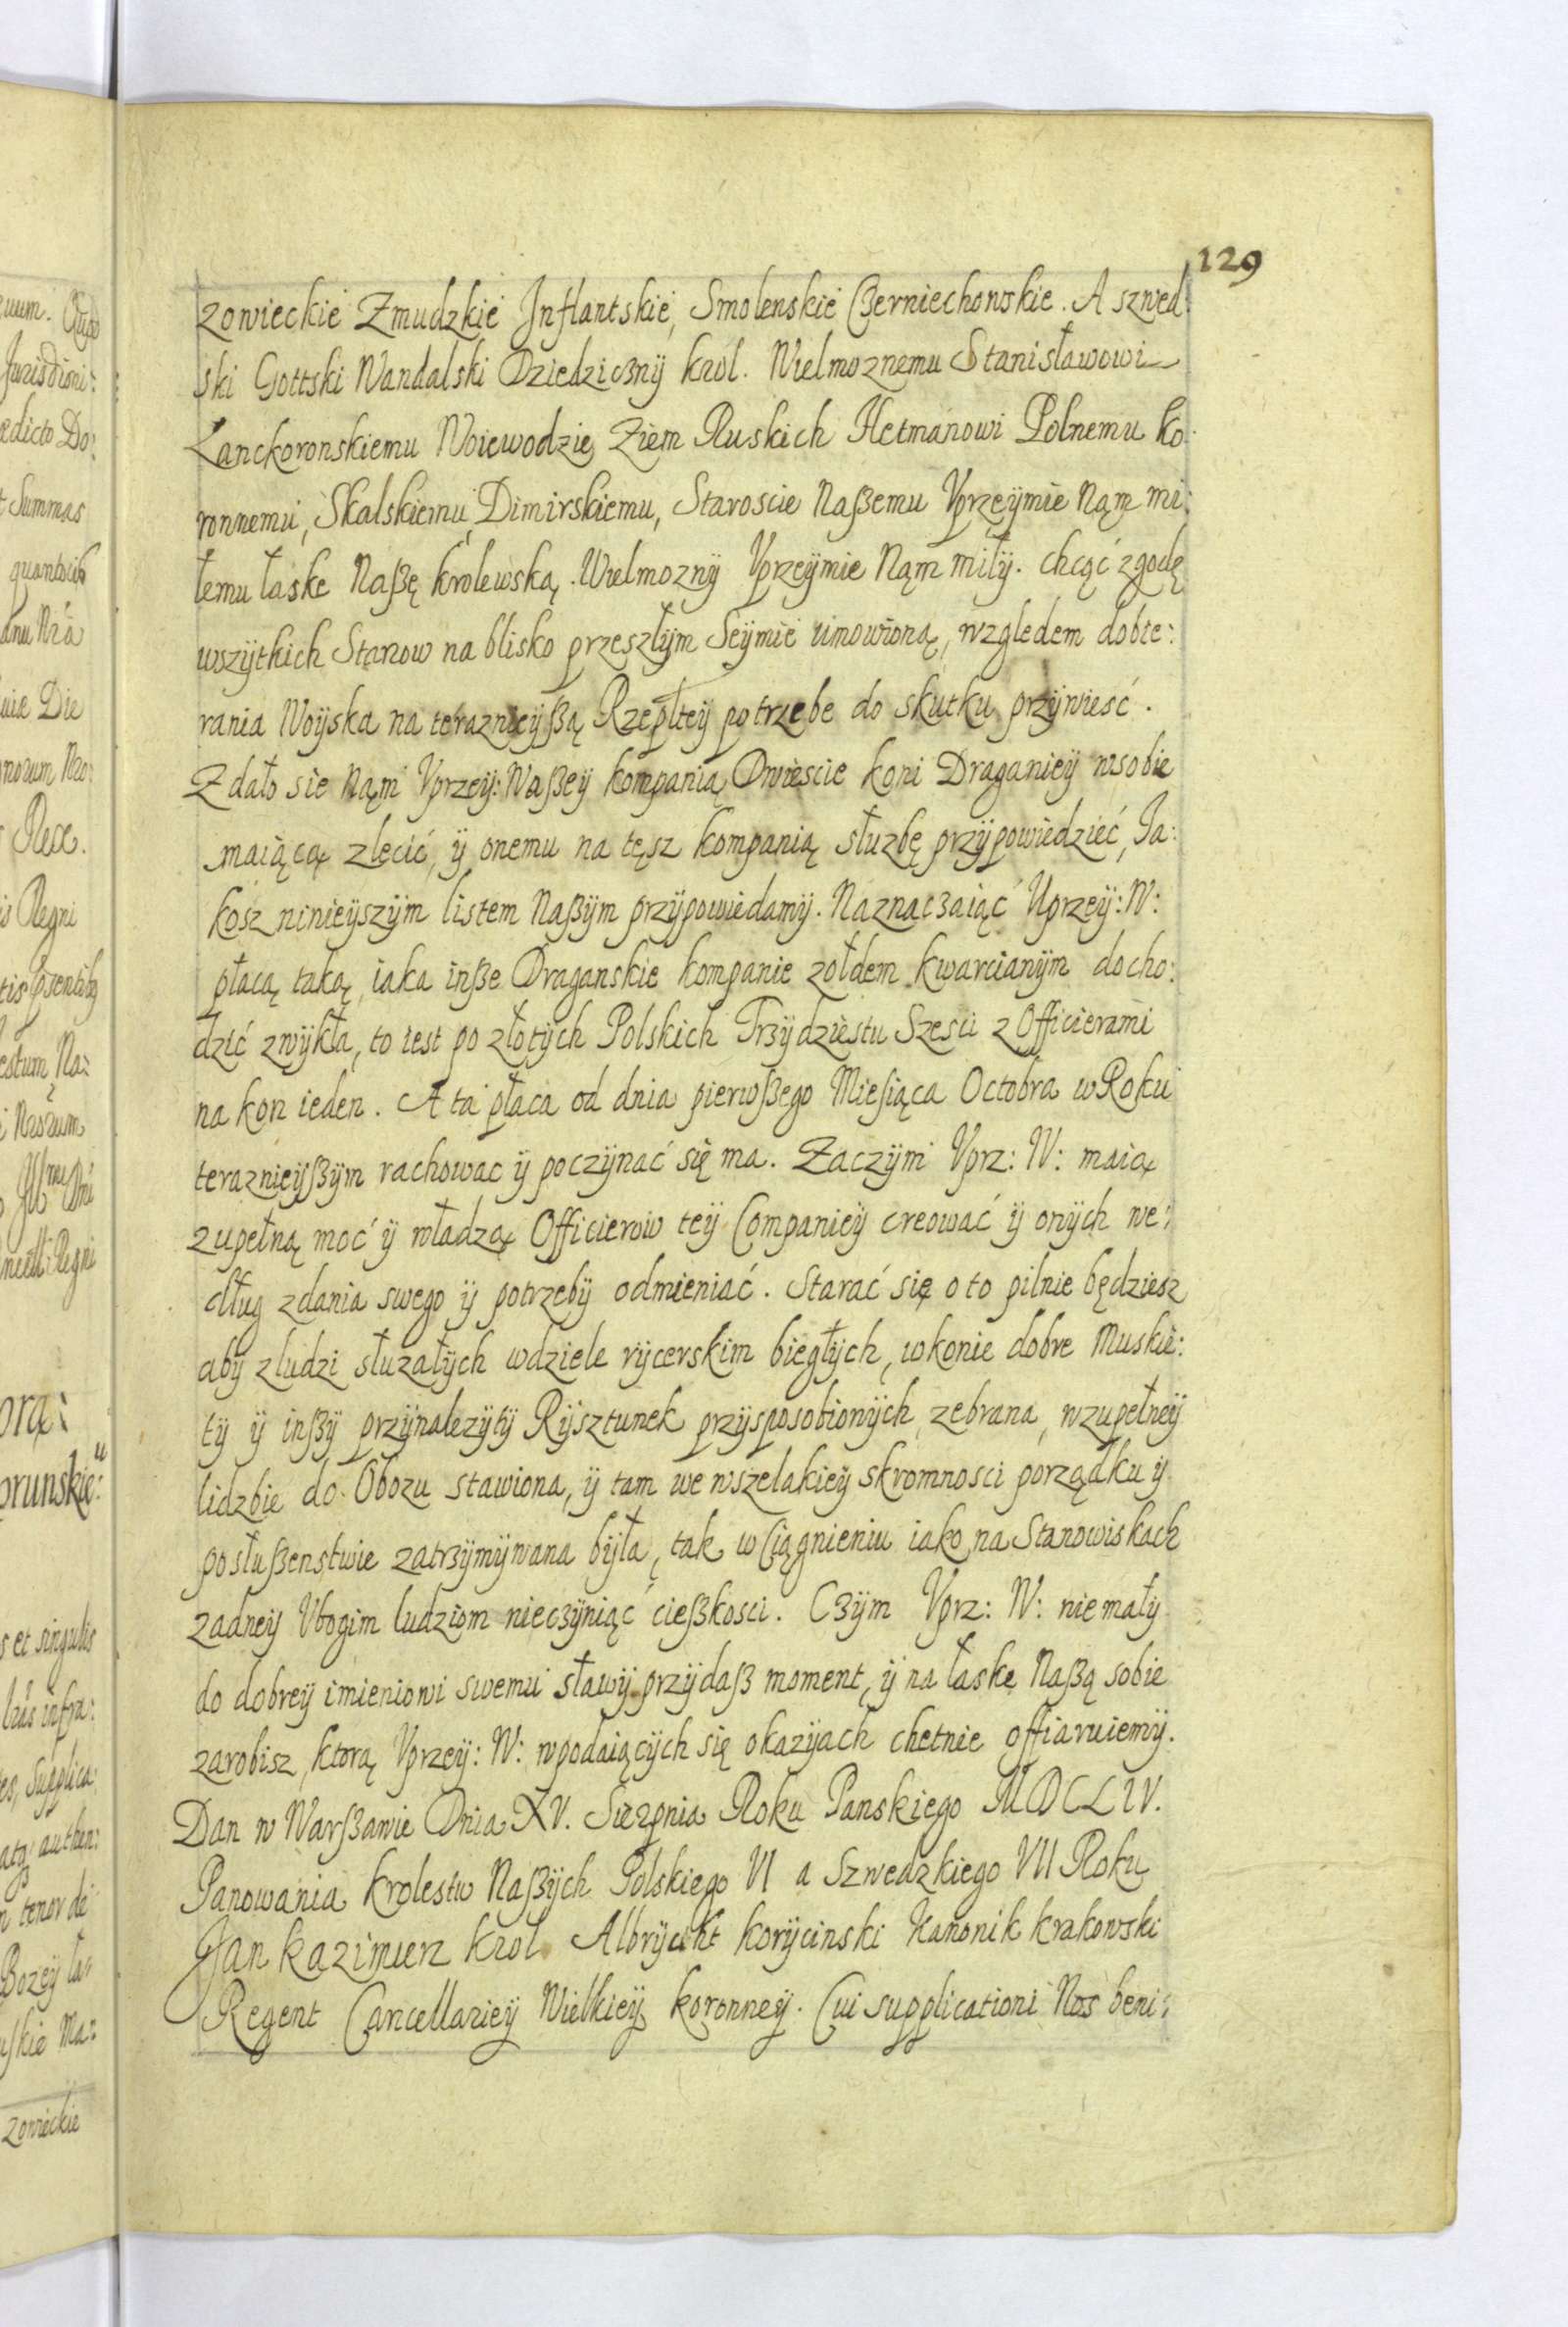 129
zowieckie Zmudzkie Inflantskie, Smolenskie Czerniechowskie. A szwed:
ski Gottski Wandalski Dziedziczny krol. Wielmoznemu Stanisławowi
Lanckoronskiemu Woiewodzie Ziem Ruskich Hetmanowi Polnemu ko:
ronnemu, Skalskiemu Dimirskiemu, Staroscie Naßemu Vprzeÿmie Nąm mi:
łemu łaske Naßę krolewską. Wielmoznÿ Vprzeÿmie Nąm miłÿ. chcąć zgodę
wszÿtkich Stanow na blisko przeszłÿm Seÿmie umowioną, względem dobie:
rania Woÿska na terazniejßą Rzepltey potrzebe do skutku przÿwieść.
Zdało sie Nąm Vprzeÿ: Waßeÿ kompanią Dwiescie koni Draganieÿ wsobie
maiącą zlęcić, ÿ onemu na tęsz kompanią słuzbę przÿpowiedzieć, Ja:
kosz ninieÿszÿm listem Naßÿm przÿpowiedamÿ. Naznaczaiąć Uprzeÿ: W:
płacą taką, iaka inße Draganskie kompanie zołdem kwarcianÿm docho:
dzić zwÿkła, to iest po złotÿch Polskich Trzÿdziestu Szesci z Officierami
na kon ieden. A ta płaca od dnia pierwßego Miesiąca Octobra w Roku
teraznieÿßÿm rachowac ÿ poczÿnać się ma. Zaczÿm Vprz: W: maią
zupełną moć ÿ władzą Officierow teÿ Companieÿ creować ÿ onÿch we:
dług zdania swego ÿ potrzebÿ odmieniać. Starać się o to pilnie będziesz
abÿ zludzi słuzałÿch wdziele rÿcerskim biegłÿch, wkonie dobre Muskie:
tÿ ÿ inßÿ przÿnalezÿtÿ Rÿsztunek przÿsposobionÿch zebrana, wzupełneÿ
lidzbie do Obozu stawiona, ÿ tam we wszelakieÿ skromnosci porządku ÿ
posłußenstwie zatrzÿmÿwana bÿła, tak w Ciągnieniu iako na Stanowiskach
zadneÿ Vbogim ludziom nieczÿniąć cießkosci. Czÿm Vprz: W: nie małÿ
do dobreÿ imieniowi swemu sławÿ przÿdaß moment, ÿ na łaskę Naßą sobie
zarobisz, ktorą Vprzeÿ: W: wpodaiącÿch się okazÿach chetnie offiaruiemÿ.
Dan w Warßawie Dnia XV. Sierpnia Roku Panskiego MDCLIV.
Panowania krolestw Naßÿch Polskiego VI a Szwedzkiego VII Roku
Jan kazimierz krol. Albrÿcht korÿcinski Kanonik krakowski
Regent Cancellarieÿ Wielkieÿ koronneÿ. Cui supplicationi Nos beni: